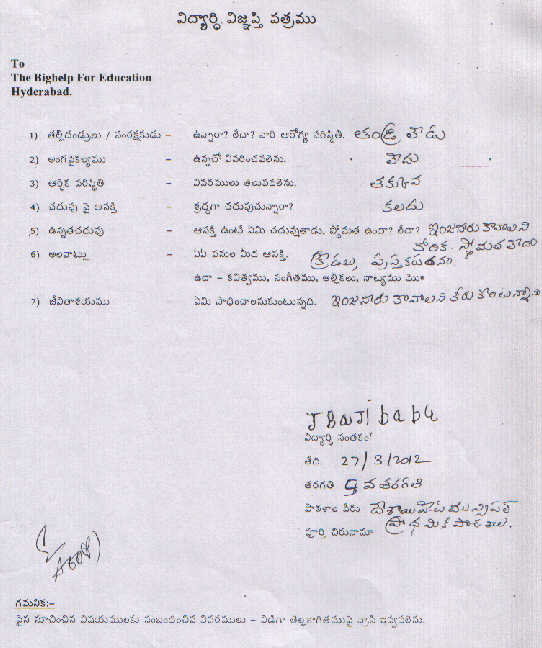 విద్యార్ధి విజ్ఞప్తి పత్రము
To
The Bighelp For Education
Hyderabad.
1) తల్లిదండ్రులు / సంరక్షకుడు – ఉన్నారా? లేదా? వారి ఆరోగ్య పరిస్థితి. తండ్రి లేడు
2) అంగవైకల్యము – ఉన్నచో వివరించవలెను. లేదు
3) ఆర్థిక పరిస్థితి – వివరములు తెలుపవలెను. తక్కువ
4) చదువు పై ఆసక్తి – శ్రద్ధగా చదువుచున్నారా? కలదు
5) ఉన్నతచదువు – ఆసక్తి ఉంటే ఏమి చదువుతాడు. స్తోమత ఉందా? లేదా? ఇంజనీరు కావాలని
కోరిక. స్తోమత లేదు
6) అలవాట్లు – ఏఏ పనుల మీద ఆసక్తి. క్రీడలు, పుస్తకపఠనం
ఉదా – కవిత్వము, సంగీతము, అల్లికలు, నాట్యము మొ॥
7) జీవితాశయము ఏమి సాధించాలనుకుంటున్నది. ఇంజనీరు కావాలని కోరుకుంటున్నాడు
J Balaji babu
విద్యార్ధి సంతకం
తేది 27/3/2012
తరగతి 5 వ తరగతి
పాఠశాల పేరు మున్సిపల్
పూర్తి చిరునామా ప్రాధమిక పాఠశాల.
గమనిక:–
పైన సూచించిన విషయములకు సంబంధించిన వివరములు – విడిగా తెల్లకాగితముపై వ్రాసి ఇవ్వవలెను.